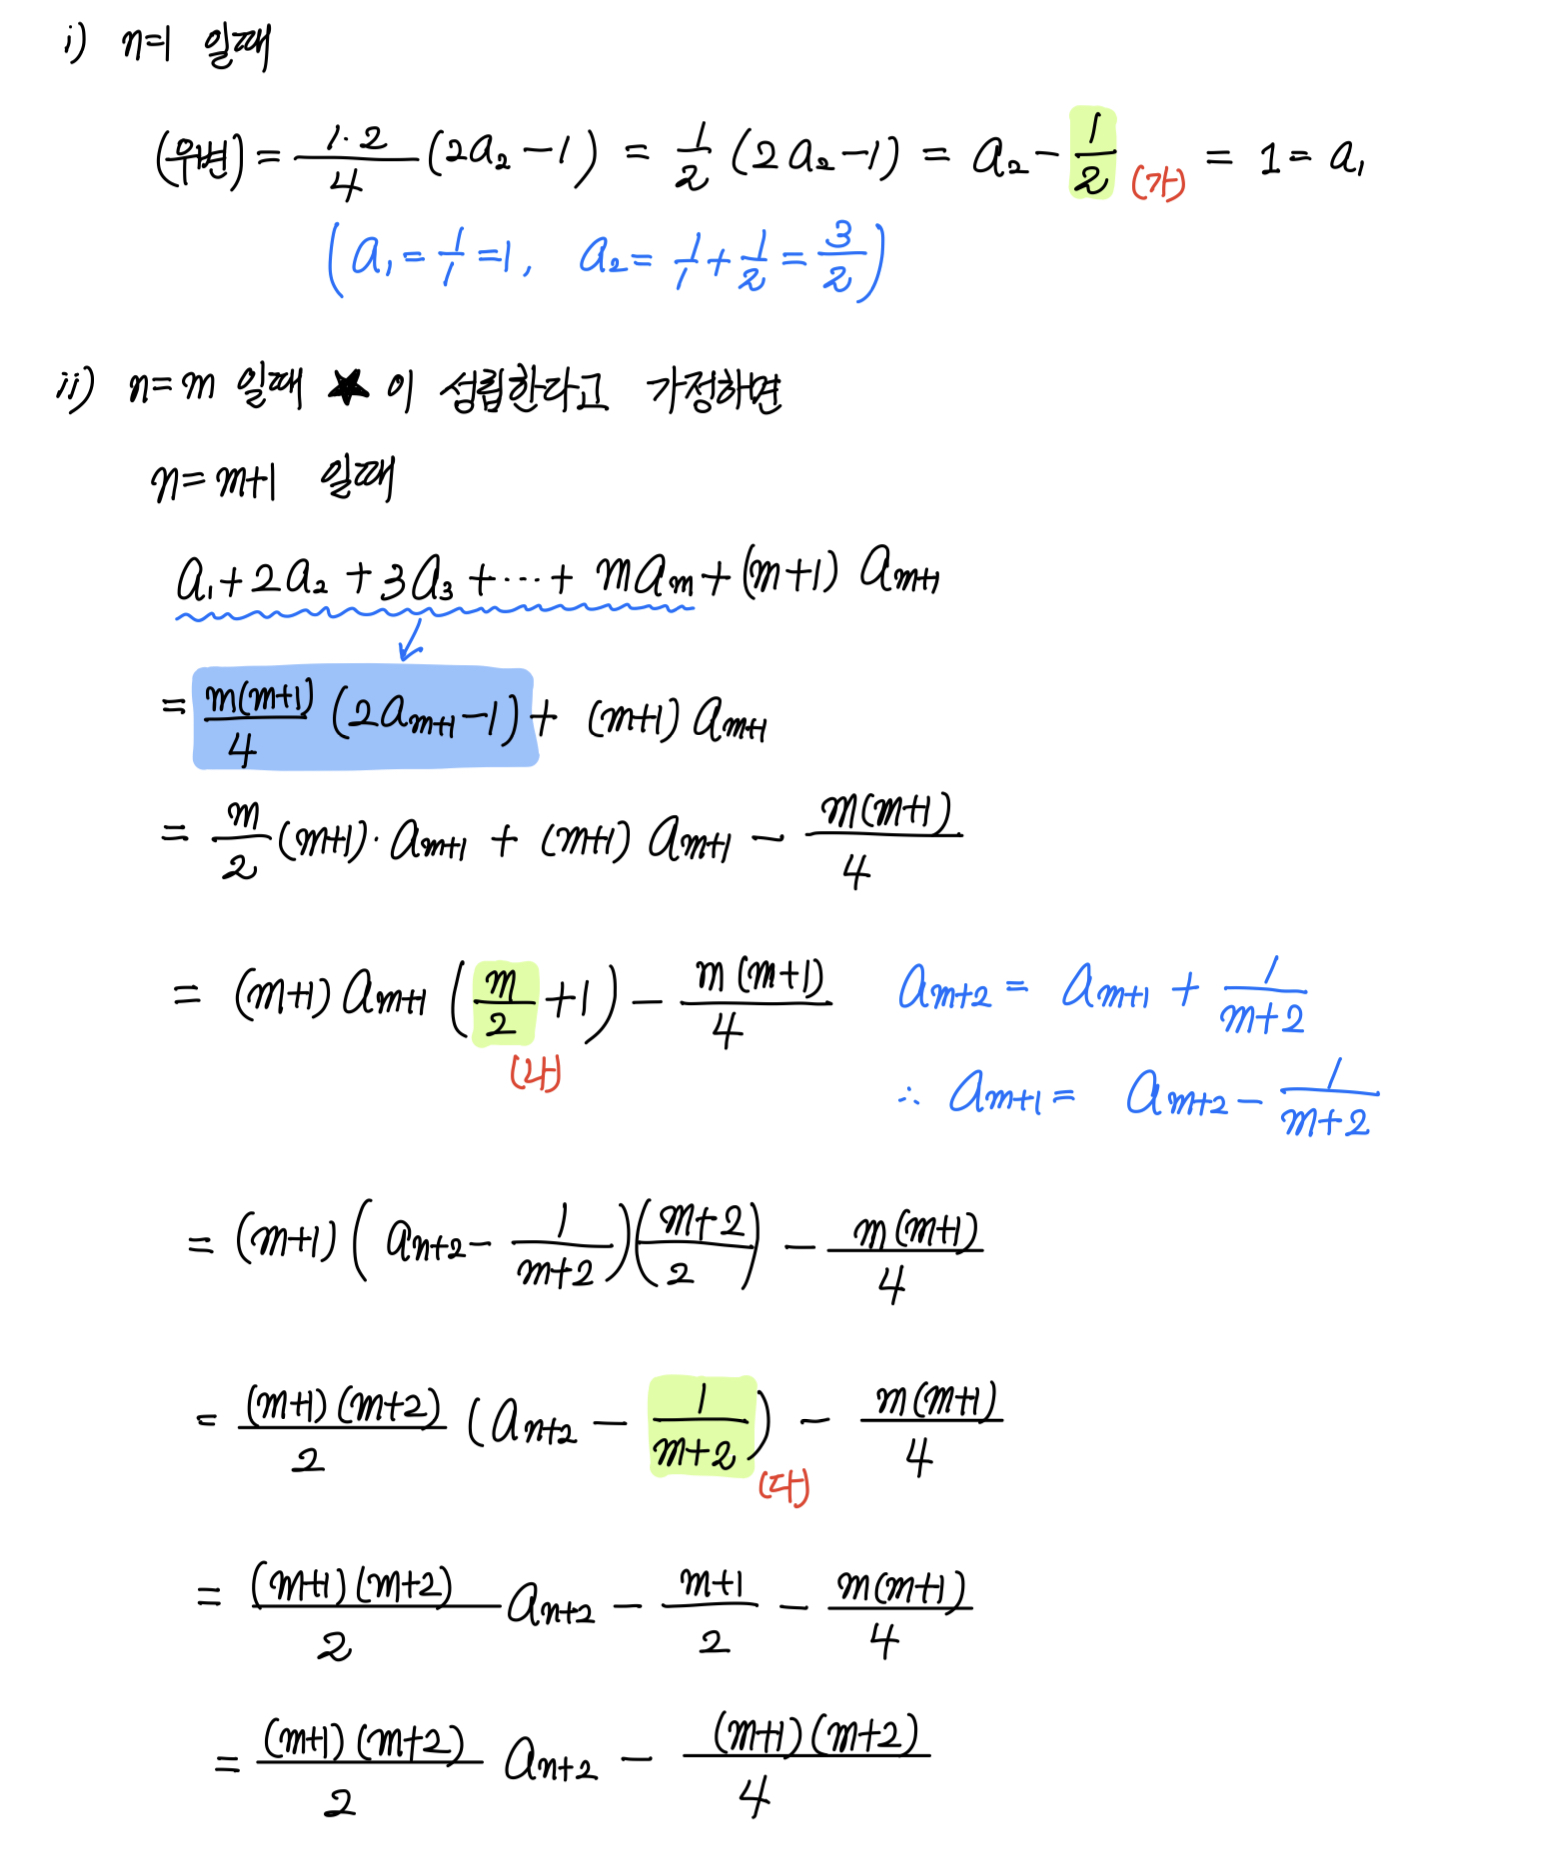 i) n=1 일때
(우변) = \frac{1·2}{4} (2a_2 - 1) = \frac{1}{2} (2a_2 - 1) = a_2 - \frac{1}{2} (가) = 1 = a_1
(a_1 = \frac{1}{1} = 1, a_2 = \frac{1}{1} + \frac{1}{2} = \frac{3}{2})
ii) n=m 일때 ★ 이 성립한다고 가정하면
n=m+1 일때
a_1 + 2a_2 + 3a_3 + ··· + ma_m + (m+1) a_{m+1}
= \frac{m(m+1)}{4} (2a_{m+1} - 1) + (m+1) a_{m+1}
= \frac{m}{2} (m+1) · a_{m+1} + (m+1) a_{m+1} - \frac{m(m+1)}{4}
= (m+1) a_{m+1} (\frac{m}{2} + 1) - \frac{m(m+1)}{4} a_{m+2} = a_{m+1} + \frac{1}{m+2}
(나)
∴ a_{m+1} = a_{m+2} - \frac{1}{m+2}
= (m+1) (a_{n+2} - \frac{1}{m+2}) (\frac{m+2}{2}) - \frac{m(m+1)}{4}
= \frac{(m+1)(m+2)}{2} (a_{n+2} - \frac{1}{m+2}) - \frac{m(m+1)}{4}
(다)
= \frac{(m+1)(m+2)}{2} a_{n+2} - \frac{m+1}{2} - \frac{m(m+1)}{4}
= \frac{(m+1)(m+2)}{2} a_{n+2} - \frac{(m+1)(m+2)}{4}